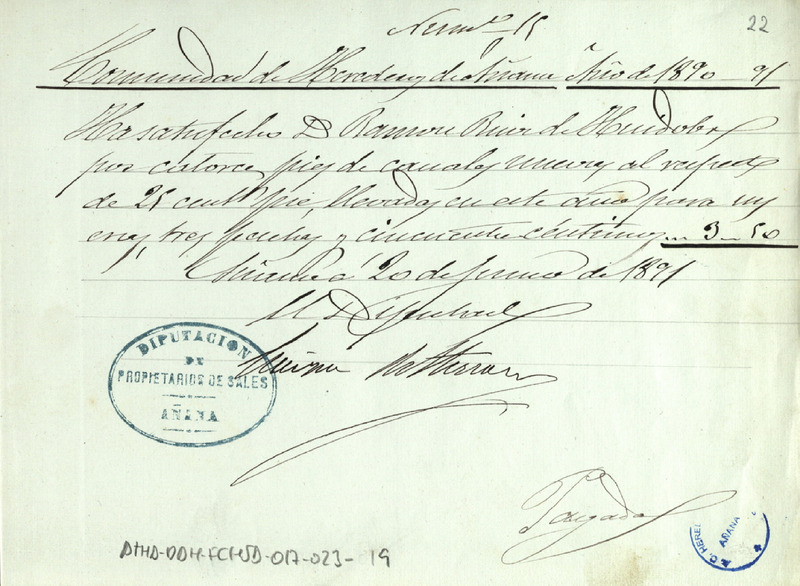 22
Num.º 15
Comunidad de Herederos de Añana Año de 1890 - 91
Ha satisfecho D Ramon Ruiz de Huidobro
por catorce pies de canales nuevos al respecto
de 25 cent pie, llevados en este año para sus
eras, tres pesetas y cincuenta céntimos ... 3 - 50
Añana 20 de Junio de 1891
El Diputado
DIPUTACION
DE
PROPIETARIOS DE SALES
AÑANA
Pagado
A.C. HERED
AÑANA
ATHA-DDH-FCHSD-017-023-19